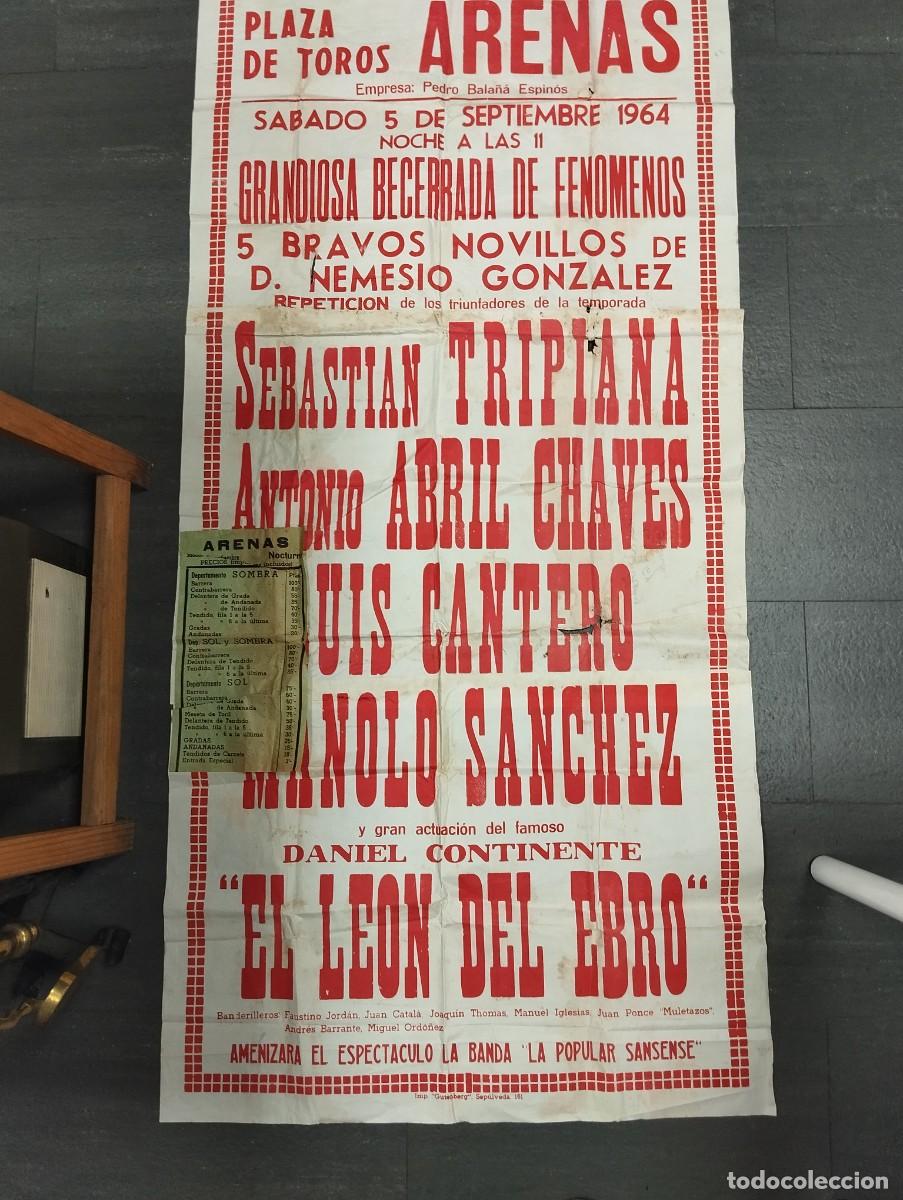 PLAZA
DE TOROS ARENAS
Empresa: Pedro Balañá Espinós
SABADO 5 DE SEPTIEMBRE 1964
NOCHE A LAS 11
GRANDIOSA BECERRADA DE FENOMENOS
5 BRAVOS NOVILLOS DE
D. NEMESIO GONZALEZ
REPETICION de los triunfadores de la temporada
SEBASTIAN TRIPIANA
ANTONIO ABRIL CHAVES
UIS CANTERO
MANOLO SANCHEZ
y gran actuación del famoso
DANIEL CONTINENTE
"EL LEON DEL EBRO"
Banderilleros: Faustino Jordán, Juan Catalá, Joaquín Thomas, Manuel Iglesias, Juan Ponce "Muletazos",
Andrés Barrante, Miguel Ordóñez
AMENIZARA EL ESPECTACULO LA BANDA "LA POPULAR SANSENSE"
Imp. "Gutenberg". Sepúlveda, 161
ARENAS
Nocturn
PRECIOS incluidos)
Departamento SOMBRA Ptas
Barrera 100
Contrabarrera
Delantera de Grada
" de Andanada
" de Tendido 70
Tendido, fila 1 a la 5
" " 6 a la última
Gradas 30
Andanadas
Dep. SOL y SOMBRA
Barrera 100
Contrabarrera
Delantera de Tendido 70
Tendido, fila 1 a la 5
" " 6 a la última
Departamento SOL
Barrera 75
Contrabarrera 60
de Andanada 30
Meseta de Toril 75
Delantera de Tendido 50
Tendido, fila 1 a la 5
" " 6 a la última 30
GRADAS
ANDANADAS 15
Tendidos de Carnets
Entrada Especial
todocoleccion